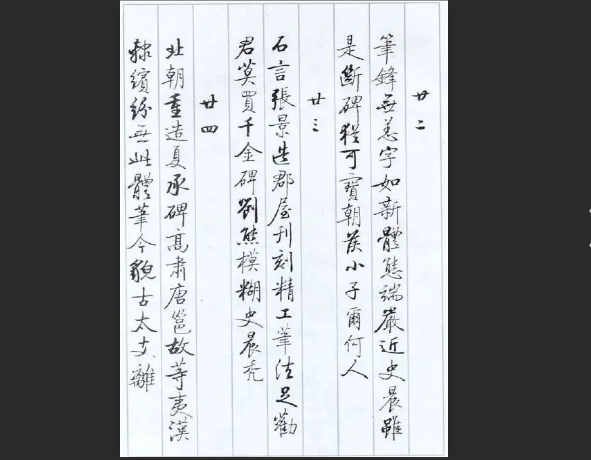 廿二
筆鋒無恙字如新體態端嚴近史晨雖
是斷碑猶可寶朝侯小子爾何人
廿三
石言張景造郡屋刊刻精工筆法足勸
君莫買千金碑劉熊模糊史晨禿
廿四
北朝重造夏承碑高肅唐邕故等夷漢
隸繽紛无此體筆今貌古太支離